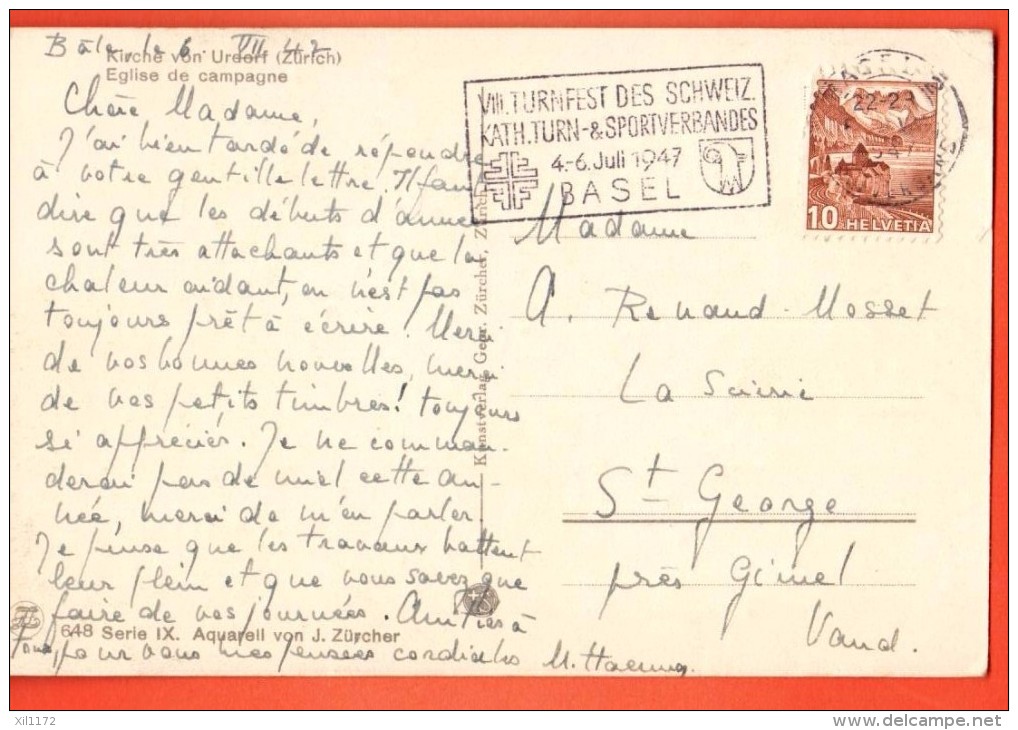 Bâle, le 6. VII 47
Kirche von Urdorf (Zürich)
Eglise de campagne
Chère Madame,
J'ai bien tardé de répondre
à votre gentille lettre. Il faut
dire que les débuts d'année
sont très attachants et que la
chaleur aidant, on n'est pas
toujours prêt à écrire! Merci
de vos bonnes nouvelles, merci
de vos petits timbres! toujours
si appréciés. Je ne comman-
derai pas de miel cette an-
née, merci de m'en parler.
Je pense que les travaux battent
leur plein et que vous savez que
faire de vos journées. Amitiés à
648 Serie IX. Aquarell von J. Zürcher
Tous, pour vous mes pensées cordiales
Kunstverlag Gebr. Zürcher, Zürich
VIII. TURNFEST DES SCHWEIZ.
KATH. TURN-& SPORTVERBANDES
4.-6. Juli 1947
BASEL
10 HELVETIA
Madame
A. Renaud-Mosset
La Scierie
St George
près Gimel
Vaud.
xil1172
delcampe.net